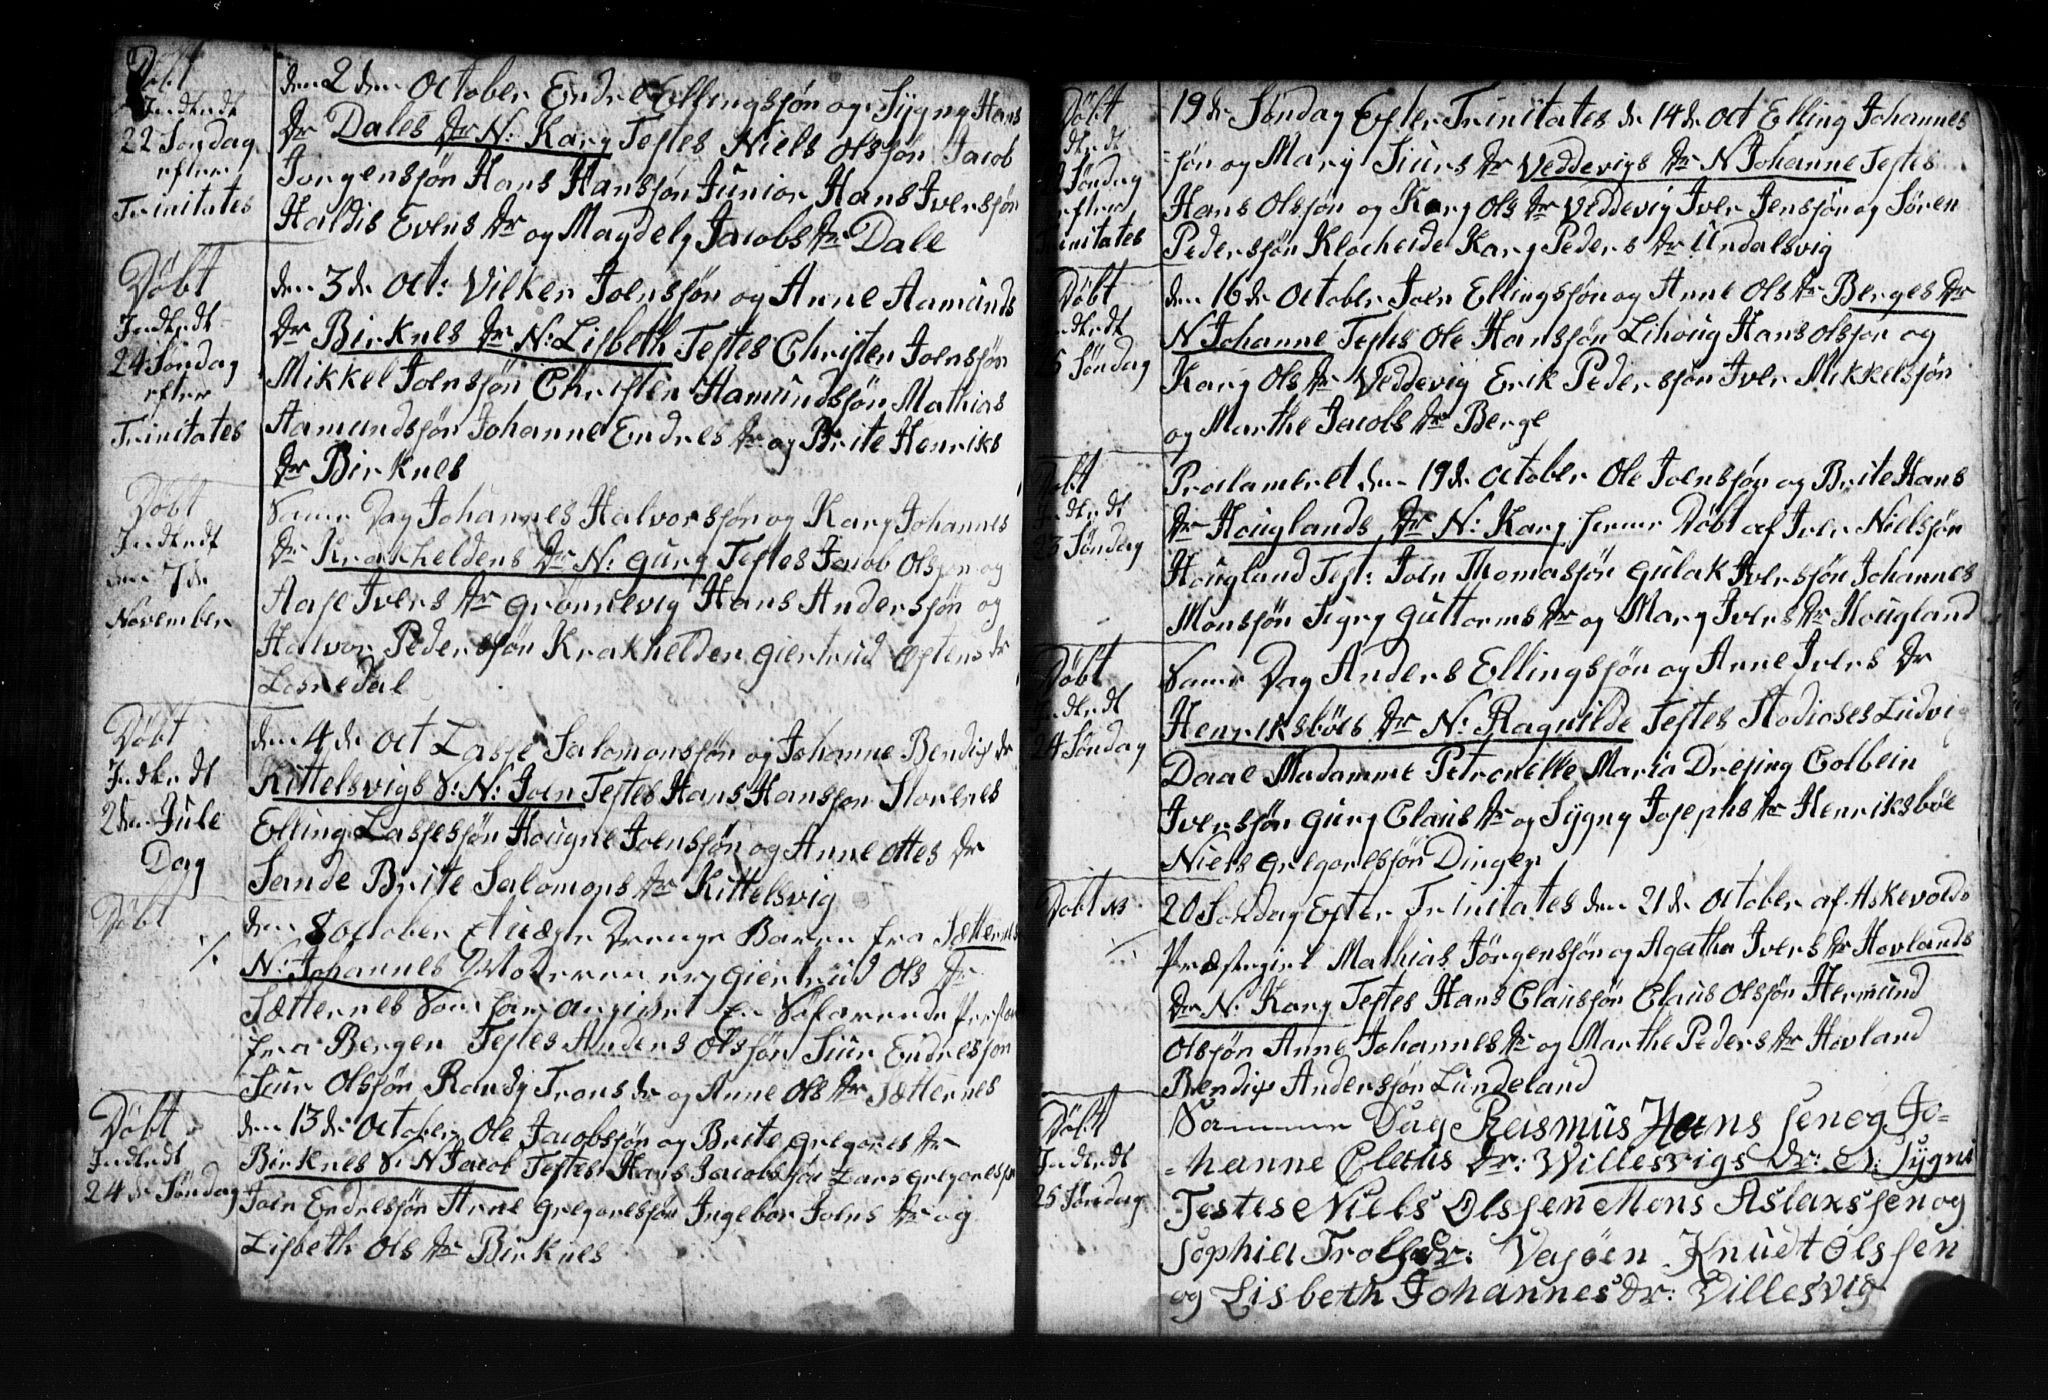 Døbt
Indledt
22 Søndag
efter
Trinitates
den 2den October Endre Ellingssøn og Sygny Hans
Dr Dales Dr N: Kary Testes Niels Olssøn Jacob
Jørgensøn Hans Hanssøn Junior Hans Iverssøn
Haldis Evens Dr og Magdely Jacobs Dr Dale
Døbt
Indledt
24 Søndag
efter
Trinitates
den 3de Oct: Vilken Joenssøn og Anne Aamunds
Dr Birknes Dr N: Lisbeth Testes Christen Joenssøn
Mikkel Joenssøn Christen Hamundssøn Mathias
Aamundssøn Johanne Endres Dr og Brite Henriks
Dr Birknes
Døbt
Indledt
den 7de
November
Same Dag Johannes Halvorssøn og Kary Johannes
Dr Krakheldens Dr N: Gury Testes Jacob Olssøn og
Aase Ivers Dr Grønnevig Hans Anderssøn og
Halvor Pederssøn Krakhelden Giertrud Østens dr
Losnedal
Døbt
Indledt
2den Jule
Dag
den 4de Oct Lasse Salomonssøn og Johanne Bendix dr
Kittelsvigs S: N: Joen Testes Hans Hanssøn Storenes
Elling Lassessøn Hougne Joenssøn og Anne Ottes Dr
Sande Brite Salomons Dr Kittelsvig
Døbt
den 8 October et uægte Drenge Baren fra Sætternes
N: Johannes Moderen er Giertrud Ols Dr
Sætternes Som har angivet En Søfarende Person
fra Bergen Testes Anders Olssøn Siur Endressøn
Siur Olssøn Randy Trons dr og Anne Ols Dr Sætternes
Døbt
Indledt
24de Søndag
den 13de October Ole Jacobssøn og Brite Gregores Dr
Birknes S: N Jacob Testes Hans Jacobssøn Lars Gregoressøn
Joen Endressøn Anne Gregoressøn Ingebor Joens Dr og
Lisbeth Ols Dr Birknes
Døbt
Søndag
efter
Trinitates
19de Søndag Efter Trinitates de 14de Oct Elling Johannes
søn og Mary Siurs Dr Veddevigs Dr N Johanne Testes
Hans Olssøn og Kary Ols Dr Veddevig Iver Jenssøn og Søren
Pederssøn Klocheide Kary Peders Dr Undalsvig
Døbt
Indledt
25 Søndag
den 16de October Joen Ellingssøn og Anne Ols Dr Berges Dr
N Johanne Testes Ole Hanssøn Lihoug Hans Olssøn og
Kary Ols Dr Veddevig Erik Pederssøn Iver Mikkelssøn
og Marthe Jacobs Dr Berge
Døbt
Indledt
23 Søndag
Proclameret den 19de October Ole Joenssøn og Brite Hans
Dr Houglands Dr N: Kary hieme Døbt af Iver Nielssøn
Hougland Test: Joen Thomassøn Gulak Iverssøn Johannes
Monssøn Sigry Guttorms Dr og Mary Ivers Dr Hougland
Døbt
Indledt
24 Søndag
Same Dag Anders Ellingssøn og Anne Ivers Dr
Henriksbøes Dr N: Ragnilde Testes Studioses Ludvig
Daae Madamme Petronelle Maria Drejing Colbein
Iverssøn Gury Claus Dr og Sygny Josephs Dr Henriksbøe
Niels Gregoressøn Dingen
Døbt NB
20 Søndag Efter Trinitates den 21de October af Askevolds
Præstegiel Mathias Jørgenssøn og Agatha Ivers Dr Hovlands
Dr N: Kary Testes Hans Claussøn Claus Olssøn Hermund
Olssøn Anne Johannes Dr og Marthe Peders Dr Hovland
Bendix Anderssøn Lundeland
Døbt
Indledt
25 Søndag
Samme Dag Rasmus Hanssen og Jo-
-hanne Claus Dr: Willesvigs Dr: N: Sygni
Testes Niels Olssen Mons Aslakssen og
Sophia Trols Dr: Vasøen Knudt Olssen
og Lisbeth Johannes Dr: Villesvig